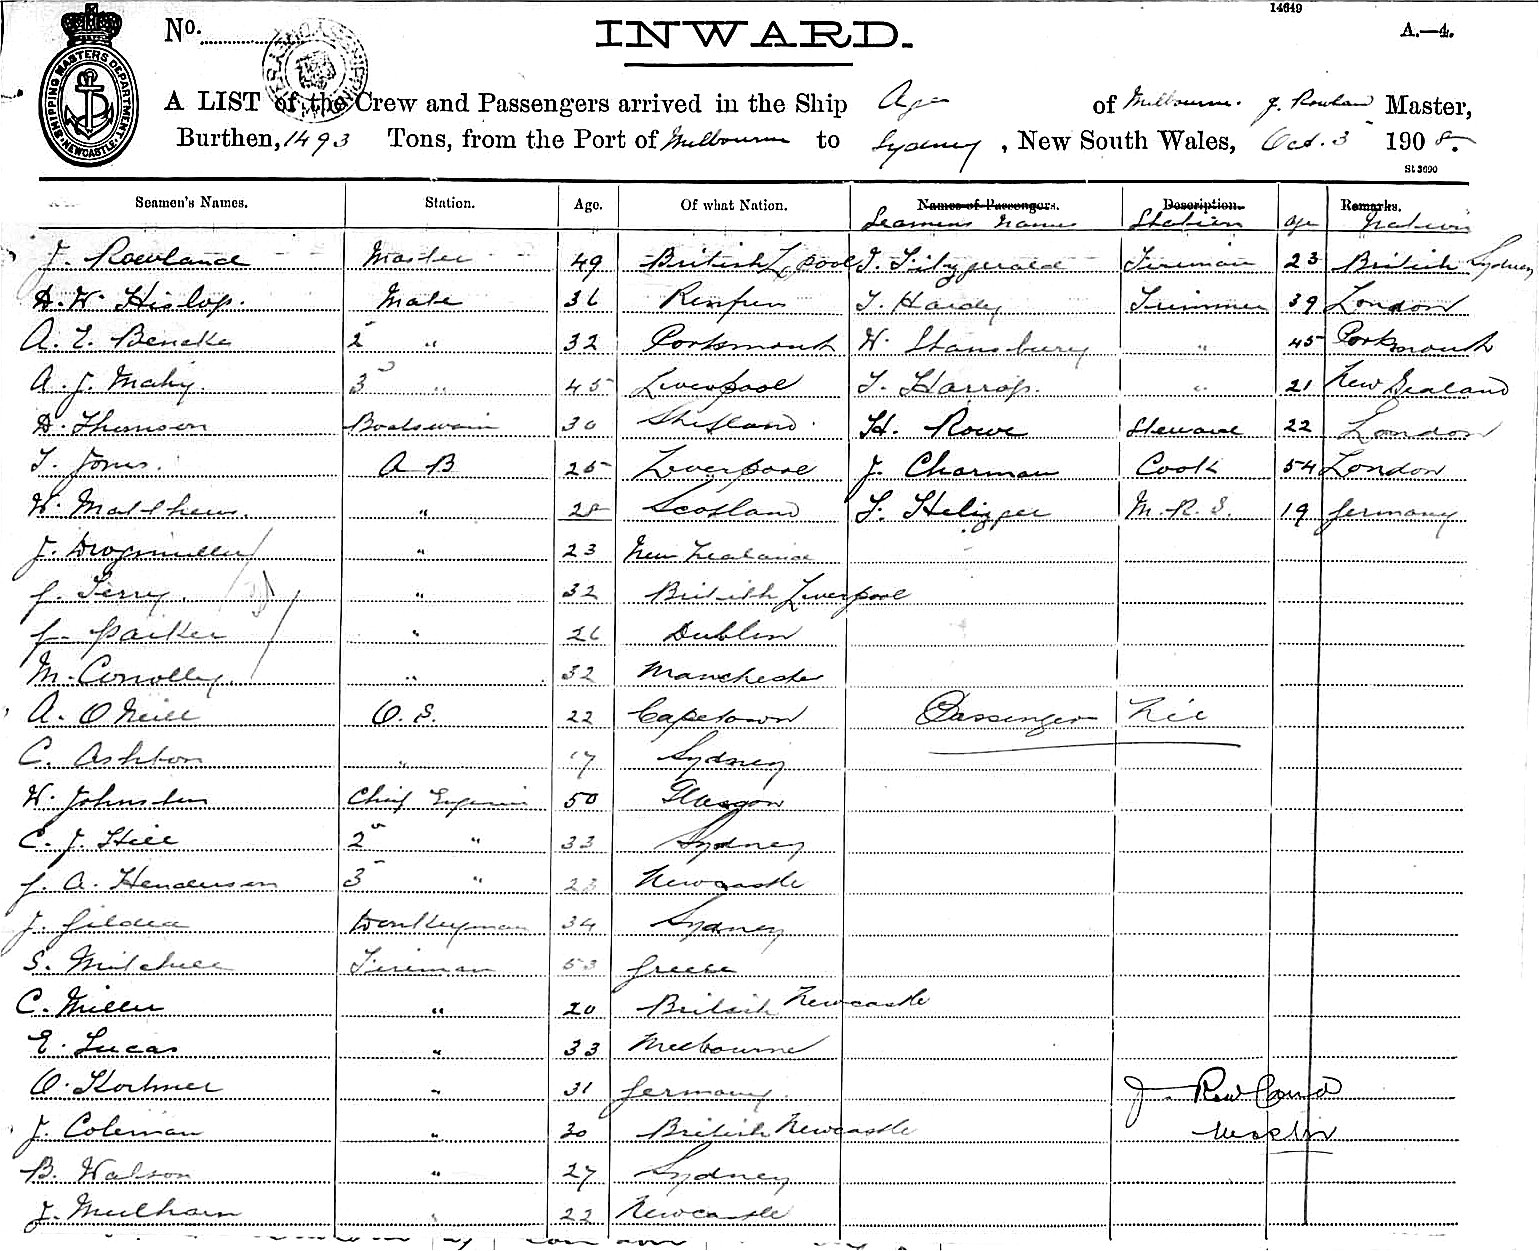 14649
No. INWARD. A.—4.
SHIPPING MASTERS DEPARTMENT NEWCASTLE
A LIST of the Crew and Passengers arrived in the Ship of Melbourne. J. Rowland Master,
Burthen, 1493 Tons, from the Port of Melbourne to Sydney, New South Wales, Oct. 3 1908.
St 3690
Seamen's Names. Station. Age. Of what Nation. Names of Passengers. Description. Remarks.
Seamens Names Station age Nation
J. Rowland Master 49 British L'pool J. Fitzgerald Fireman 23 British Sydney
D. W. Hislop. Mate 36 Renfrew T. Hardy Trimmer 39 London
A. E. Bencke 2 " 32 Portsmouth W. Stansbury " 45 Portsmouth
A. J. Mahy. 3 " 45 Liverpool T. Harrop. " 21 New Zealand
D. Thomson Boatswain 30 Shetland. H. Rowe Steward 22 London
T. Jones. A B 25 Liverpool J. Charman Cook 54 London
W. Matthews. " 28 Scotland F. Helizger M. R. S. 19 Germany
J. " 23 New Zealand
J. Terry. " 32 British Liverpool
J. Parker " 26 Dublin
M. Conolley. " 32 Manchester
A. O'Neill O. S. 22 Capetown Passenger Nil
C. Ashton " 17 Sydney
W. Johnston Chief Engineer 50 Glasgow
C. J. Hill 2 " 33 Sydney
J. A. Henderson 3 " 23 Newcastle
J. Gildea Donkeyman 34 Sydney
S. Mitchell Fireman 53 Greece
C. Miller " 20 British Newcastle
E. Lucas " 33 Melbourne
O. Kortmer " 31 Germany.
J. Rowland
J. Coleman " 30 British Newcastle
Master
B. Watson " 27 Sydney
J. Mulhearn " 22 Newcastle